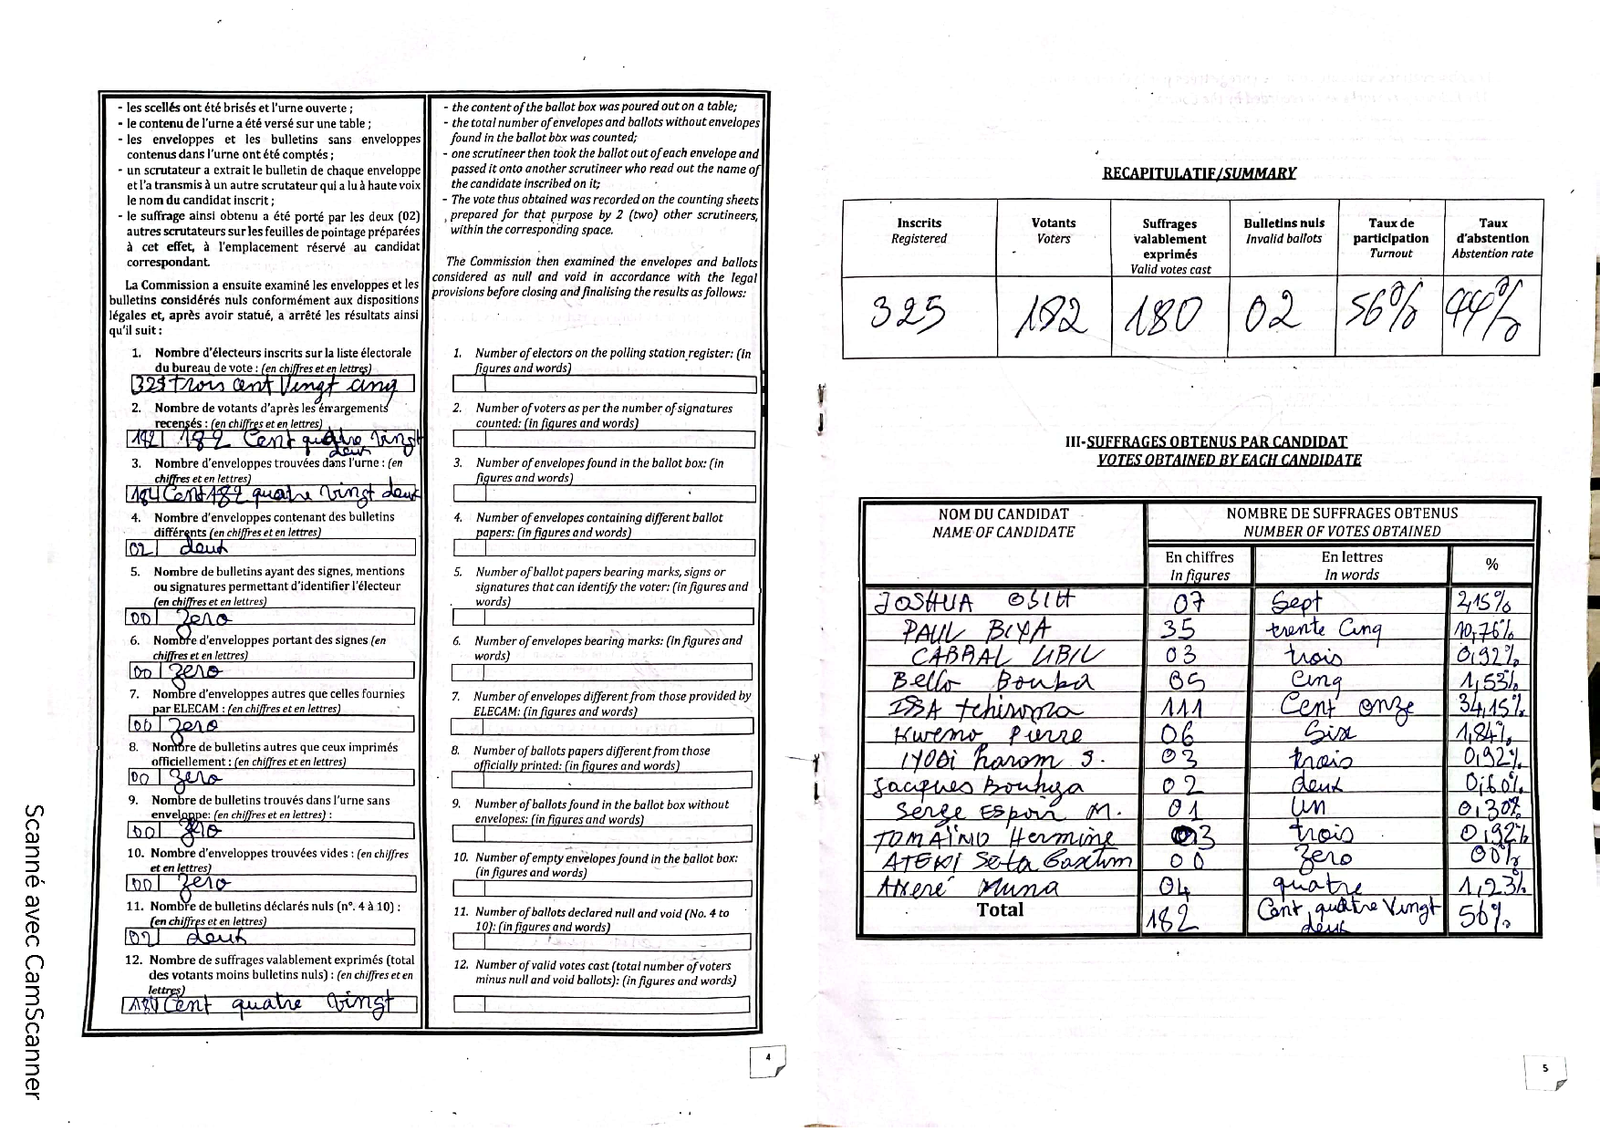 - les scellés ont été brisés et l'urne ouverte ;
- le contenu de l'urne a été versé sur une table ;
- les enveloppes et les bulletins sans enveloppes
contenus dans l'urne ont été comptés ;
- un scrutateur a extrait le bulletin de chaque enveloppe
et l'a transmis à un autre scrutateur qui a lu à haute voix
le nom du candidat inscrit ;
- le suffrage ainsi obtenu a été porté par les deux (02)
autres scrutateurs sur les feuilles de pointage préparées
à cet effet, à l'emplacement réservé au candidat
correspondant.
La Commission a ensuite examiné les enveloppes et les
bulletins considérés nuls conformément aux dispositions
légales et, après avoir statué, a arrêté les résultats ainsi
qu'il suit :
1. Nombre d'électeurs inscrits sur la liste électorale
du bureau de vote : (en chiffres et en lettres)
325 trois cent Vingt cinq
2. Nombre de votants d'après les émargements
recensés : (en chiffres et en lettres)
182 Cent quatre vingt
deux
3. Nombre d'enveloppes trouvées dans l'urne : (en
chiffres et en lettres)
Cent 182 quatre vingt deux
4. Nombre d'enveloppes contenant des bulletins
différents (en chiffres et en lettres)
02 deux
5. Nombre de bulletins ayant des signes, mentions
ou signatures permettant d'identifier l'électeur
(en chiffres et en lettres)
00 Zero
6. Nombre d'enveloppes portant des signes (en
chiffres et en lettres)
00 Zero
7. Nombre d'enveloppes autres que celles fournies
par ELECAM : (en chiffres et en lettres)
00 Zero
8. Nombre de bulletins autres que ceux imprimés
officiellement : (en chiffres et en lettres)
00 Zero
9. Nombre de bulletins trouvés dans l'urne sans
enveloppe: (en chiffres et en lettres) :
00 Zero
10. Nombre d'enveloppes trouvées vides : (en chiffres
et en lettres)
00 Zero
11. Nombre de bulletins déclarés nuls (n°. 4 à 10) :
(en chiffres et en lettres)
02 deux
12. Nombre de suffrages valablement exprimés (total
des votants moins bulletins nuls) : (en chiffres et en
lettres)
180 Cent quatre Vingt
- the content of the ballot box was poured out on a table;
- the total number of envelopes and ballots without envelopes
found in the ballot box was counted;
- one scrutineer then took the ballot out of each envelope and
passed it onto another scrutineer who read out the name of
the candidate inscribed on it;
- The vote thus obtained was recorded on the counting sheets
prepared for that purpose by 2 (two) other scrutineers,
within the corresponding space.
The Commission then examined the envelopes and ballots
considered as null and void in accordance with the legal
provisions before closing and finalising the results as follows:
1. Number of electors on the polling station register: (in
figures and words)
2. Number of voters as per the number of signatures
counted: (in figures and words)
3. Number of envelopes found in the ballot box: (in
figures and words)
4. Number of envelopes containing different ballot
papers: (in figures and words)
5. Number of ballot papers bearing marks, signs or
signatures that can identify the voter: (in figures and
words)
6. Number of envelopes bearing marks: (in figures and
words)
7. Number of envelopes different from those provided by
ELECAM: (in figures and words)
8. Number of ballots papers different from those
officially printed: (in figures and words)
9. Number of ballots found in the ballot box without
envelopes: (in figures and words)
10. Number of empty envelopes found in the ballot box:
(in figures and words)
11. Number of ballots declared null and void (No. 4 to
10): (in figures and words)
12. Number of valid votes cast (total number of voters
minus null and void ballots): (in figures and words)
4
Scanné avec CamScanner
RECAPITULATIF/SUMMARY
Inscrits Votants Suffrages Bulletins nuls Taux de Taux
Registered Voters valablement Invalid ballots participation d'abstention
exprimés Turnout Abstention rate
Valid votes cast
325 182 180 02 56% 44%
III-SUFFRAGES OBTENUS PAR CANDIDAT
VOTES OBTAINED BY EACH CANDIDATE
NOM DU CANDIDAT NOMBRE DE SUFFRAGES OBTENUS
NAME OF CANDIDATE NUMBER OF VOTES OBTAINED
En chiffres En lettres %
In figures In words
JOSHUA OSIH 07 Sept 2,15%
PAUL BIYA 35 trente Cinq 10,76%
CABRAL LIBII 03 trois 0,92%
Bello Bouba 05 Cinq 1,53%
ISSA tchiroma 111 Cent onze 34,15%
Kwemo Pierre 06 Six 1,84%
IYODI hiram S. 03 trois 0,92%
Jacques Bouhga 02 deux 0,60%
Serge Espoir M. 01 un 0,30%
TOMAÏNO Hermine 03 trois 0,92%
ATEKI Seta Caxtim 00 Zero 00%
Akeré Muna 04 quatre 1,23%
Total 182 Cent quatre Vingt deux 56%
5